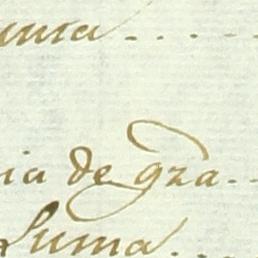 uma....
ia de gza..
Suma...